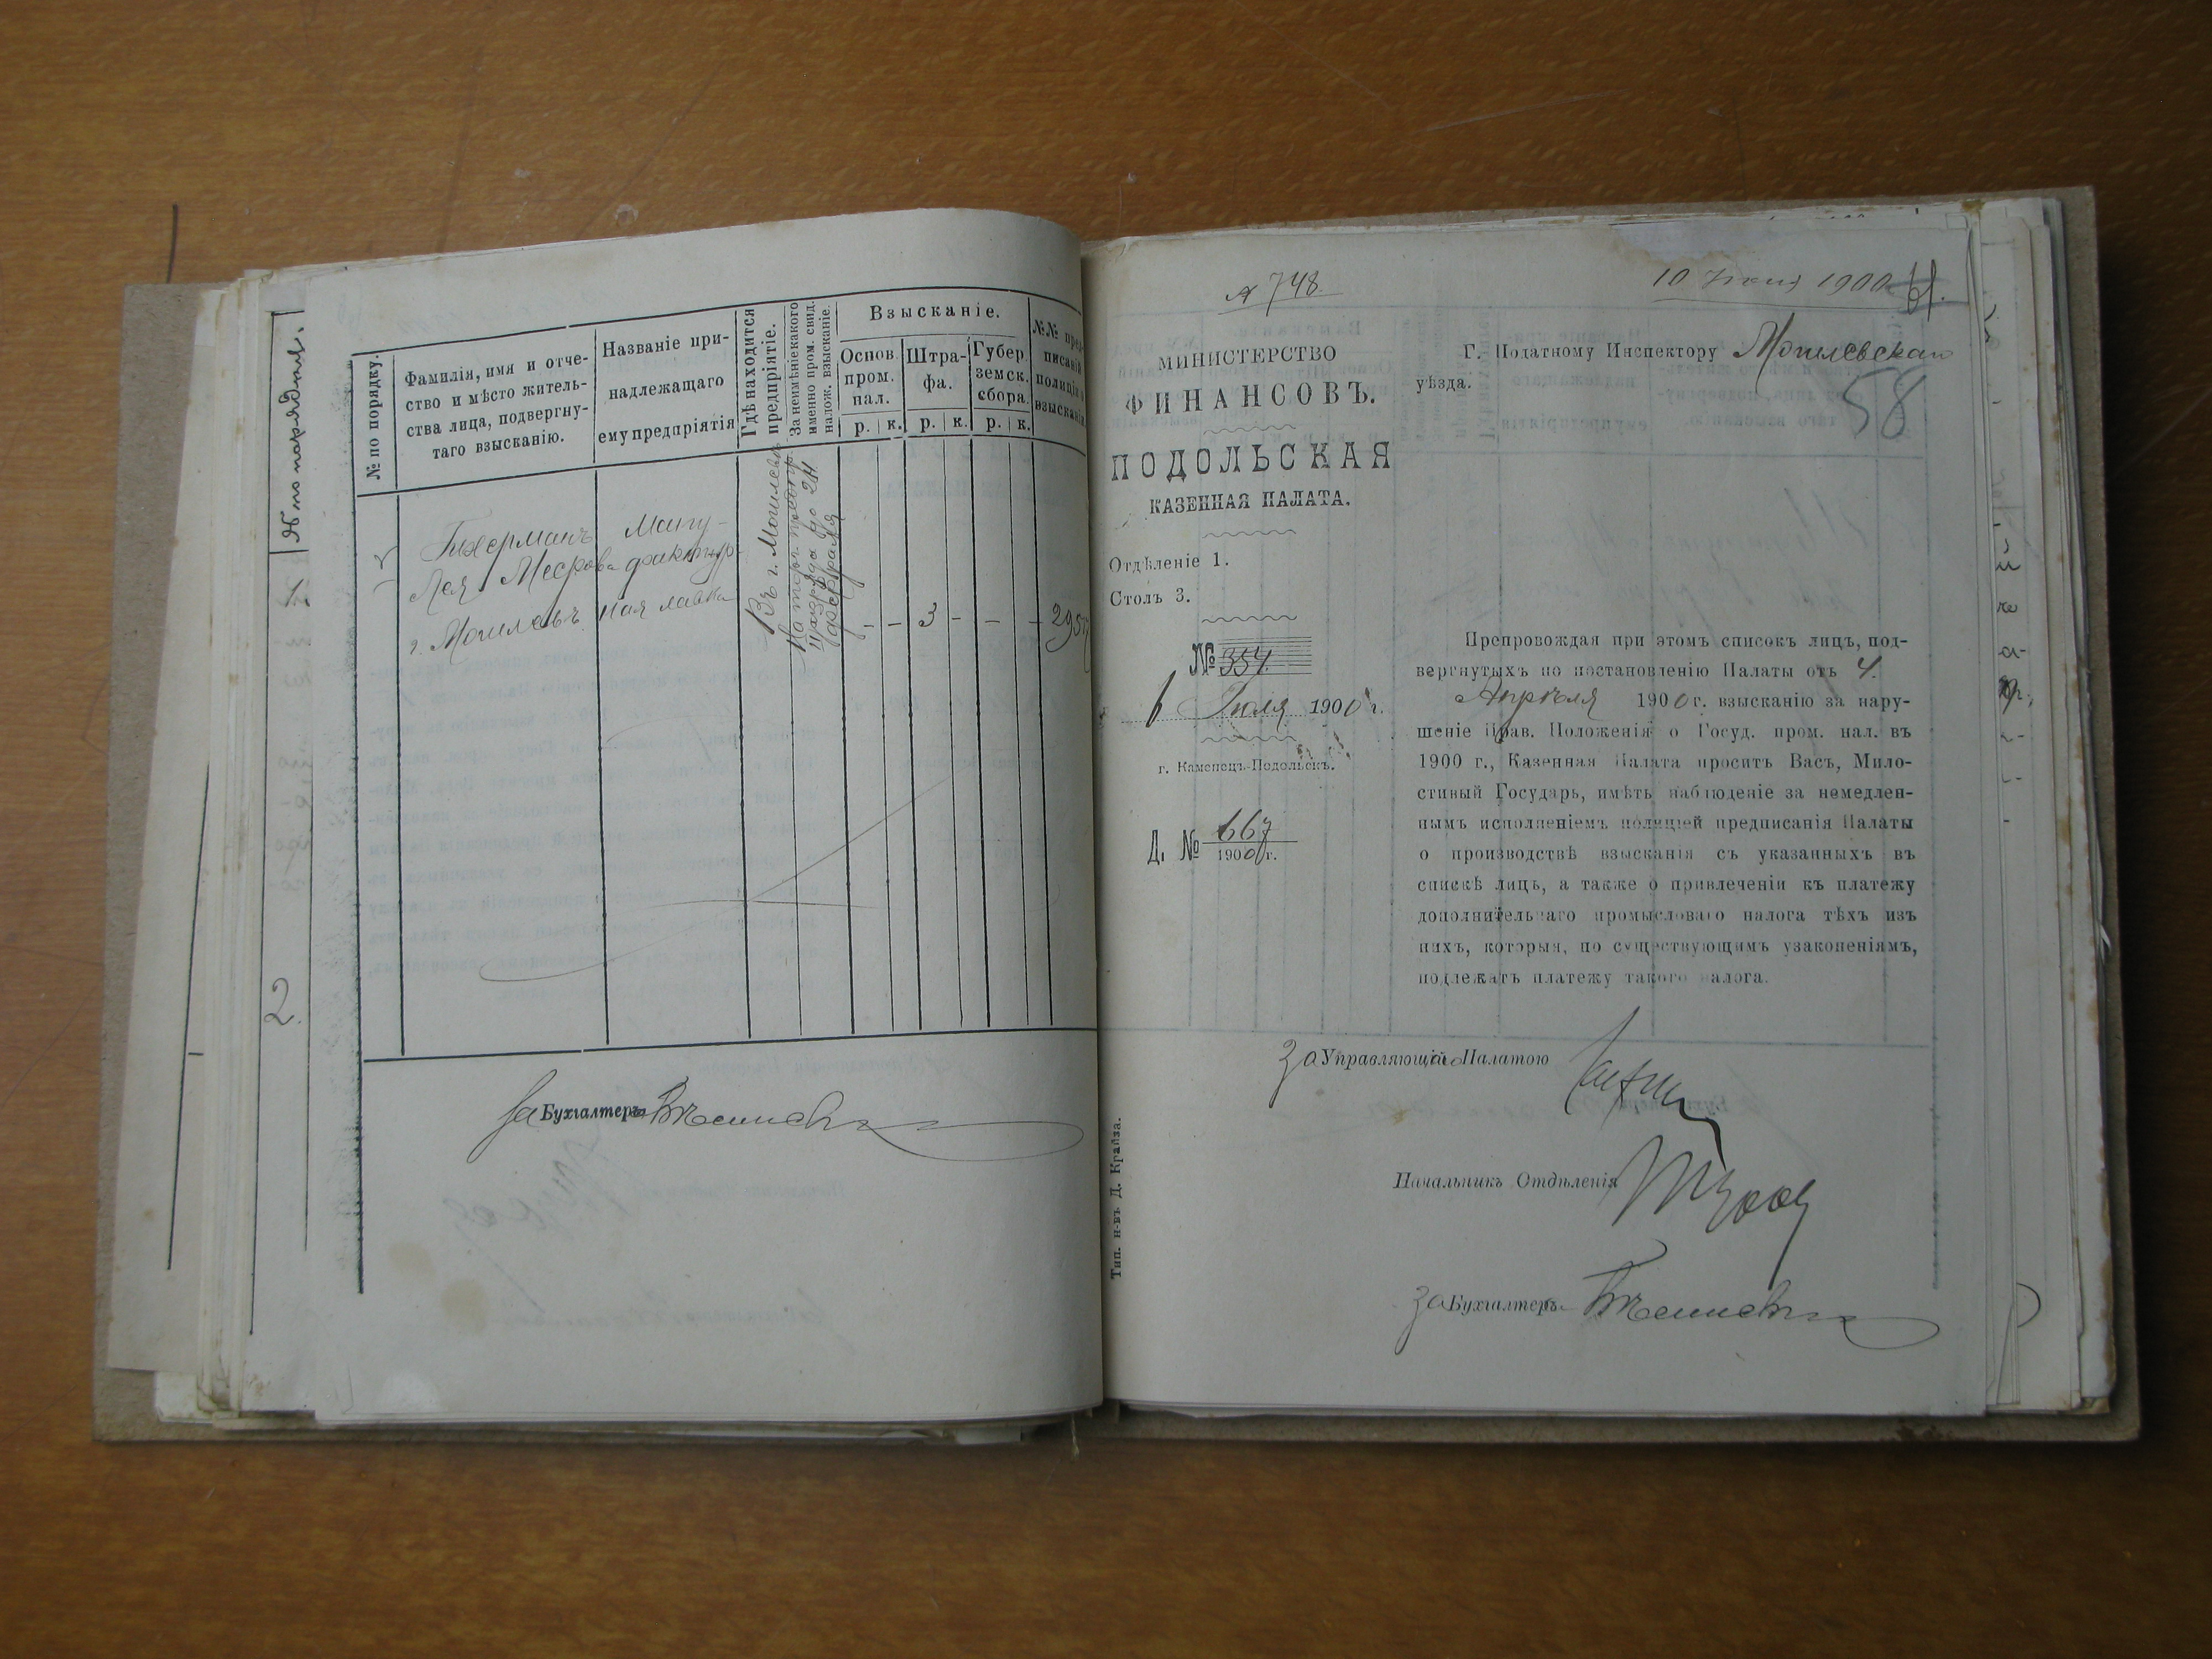 № по порядку.
Фамилія, имя и отче-
ство и мѣсто житель-
ства лица, подвергну-
таго взысканію.
Названіе при-
надлежащаго
ему предпріятія
Гдѣ находится
предпріятіе.
За неимѣніе какого
именно пром. свид.
налож. взысканіе.
Взысканіе.
Основ.
пром.
пал.
Штра-
фа.
Губер.
земск.
сбора.
р. к. р. к. р. к.
№№ пред-
писаній
полиціи о
взысканіи
Лея
г. Могилевъ
Ману-
фактур-
ная лавка
Въ г. Могилевѣ
февраля
– – 3 – – –
За Бухгалтера
№ по порядку.
1.
2.
748
10 1900
58
МИНИСТЕРСТВО
ФИНАНСОВЪ.
ПОДОЛЬСКАЯ
КАЗЕННАЯ ПАЛАТА.
Отдѣленіе 1.
Столъ 3.
№ 354.
6 Іюля 1900 г.
г. Каменецъ-Подольскъ.
Д. № 667
1900 г.
Г. Податному Инспектору Могилевскаго
уѣзда.
Препровождая при этомъ списокъ лицъ, под-
вергнутыхъ по постановленію Палаты отъ 4
Апрѣля 1900 г. взысканію за нару-
шеніе Прав. Положенія о Госуд. пром. нал. въ
1900 г., Казенная Палата проситъ Васъ, Мило-
стивый Государь, имѣть наблюденіе за немедлен-
нымъ исполненіемъ полиціей предписанія Палаты
о производствѣ взысканія съ указанныхъ въ
спискѣ лицъ, а также о привлеченіи къ платежу
дополнительнаго промысловаго налога тѣхъ изъ
нихъ, которыя, по существующимъ узаконеніямъ,
подлежатъ платежу такого налога.
За Управляющаго Палатою
Начальникъ Отдѣленія
За Бухгалтера
Тип. н-въ Д. Крайза.